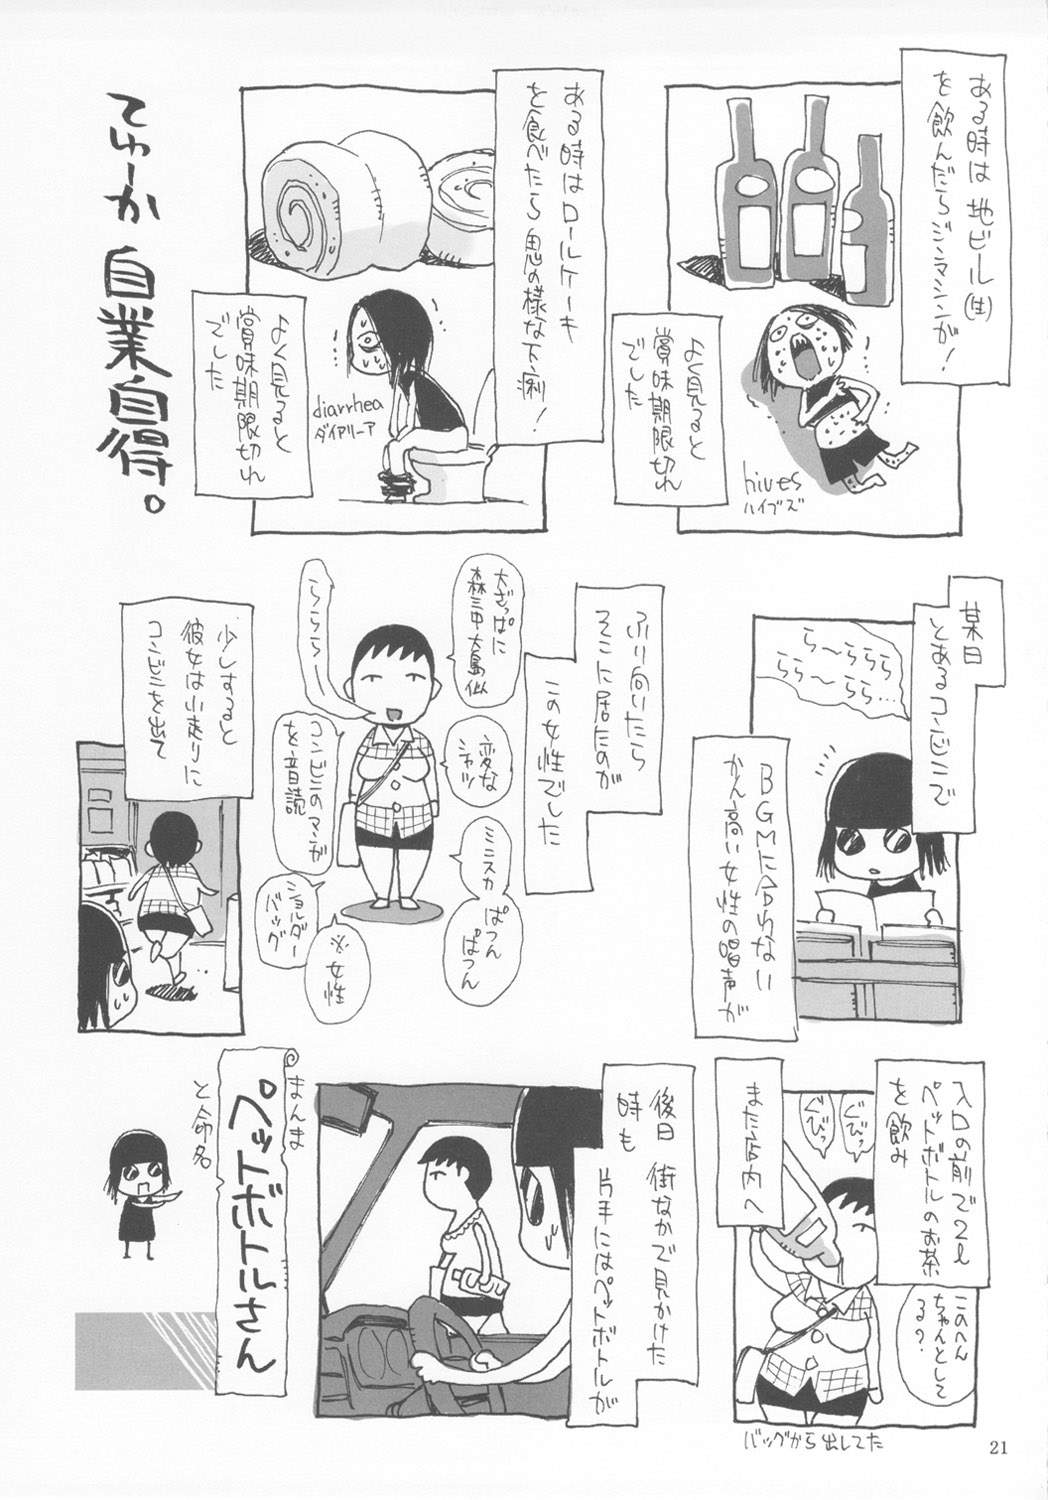 ある時は地ビール(生)
を飲んだらジンマシンが!
よく見ると
賞味期限切れ
でした
hives
ハイブズ
ある時はロールケーキ
を食べたら鬼の様な下痢!
よく見ると
賞味期限切れ
でした
diarrhea
ダイアリーア
てゆーか自業自得。
某日
とあるコンビニで
ら〜ららら
らら〜らら…
BGMに合わない
かん高い女性の唱声が
ふり向いたら
そこに居たのが
この女性でした
大ざっぱに
森三中大島似
らららら〜
変な
シャツ
コンビニのマンガ
を音読
ミニスカぱつん
ぱつん
ショルダー
バッグ
※女性
少しすると
彼女は小走りに
コンビニを出て
入口の前で2ℓ
ペットボトルのお茶
を飲み
ぐびっ
ぐびっ
また店内へ
このへん
ちゃんとして
る?
バッグから出してた
後日 街なかで見かけた
時も 片手にはペットボトルが
まんま
ペットボトルさん
と命名
21